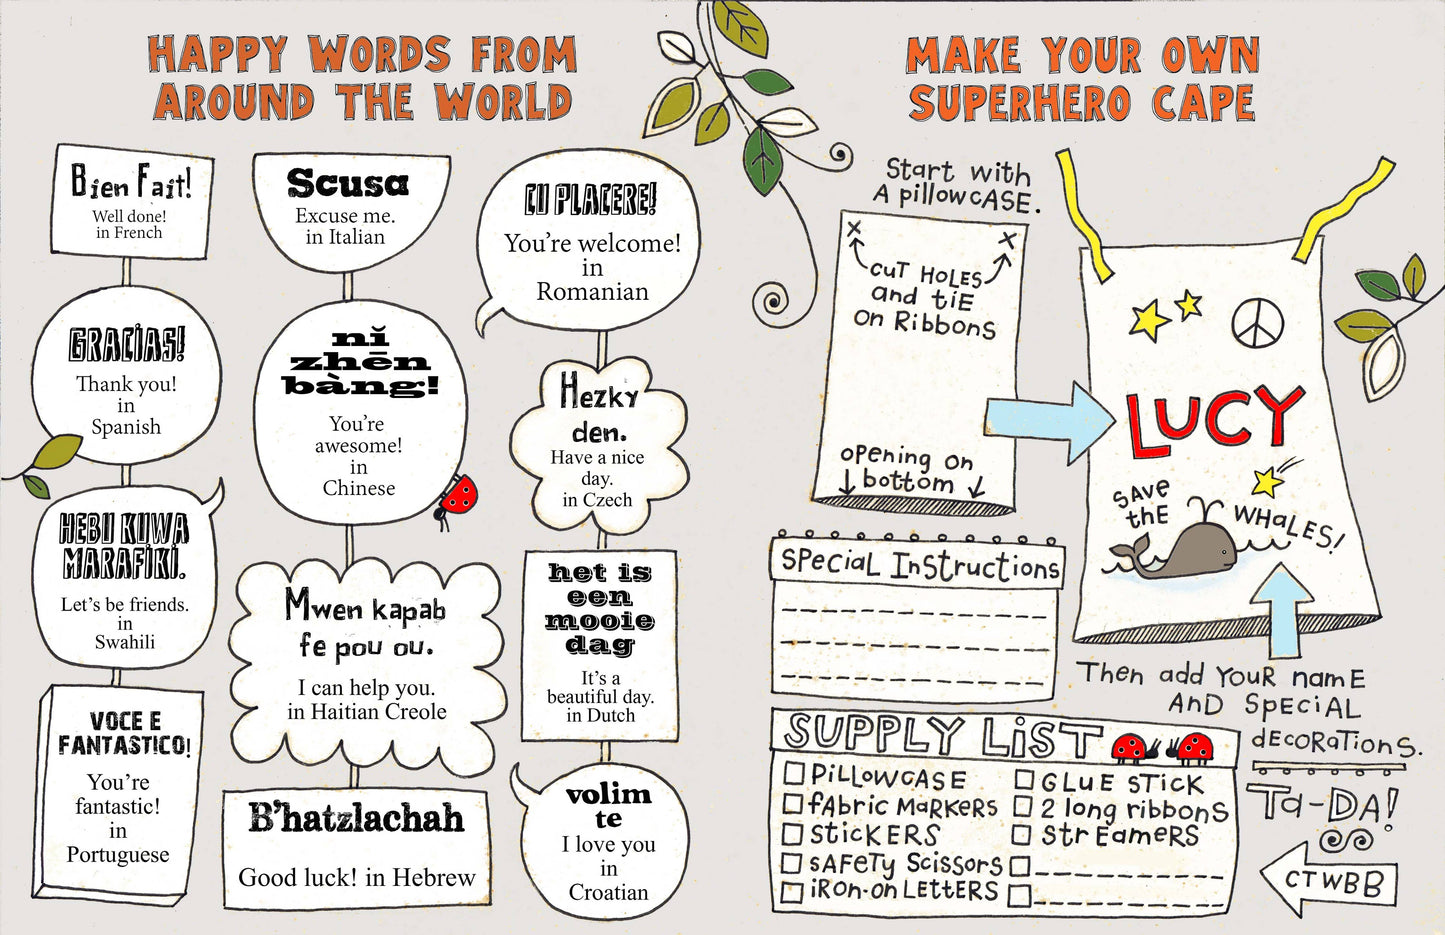 HAPPY WORDS FROM
AROUND THE WORLD
Bien Fait!
Well done!
in French
GRACIAS!
Thank you!
in
Spanish
HEBU KUWA
MARAFIKI.
Let's be friends.
in
Swahili
VOCE E
FANTASTICO!
You're
fantastic!
in
Portuguese
Scusa
Excuse me.
in Italian
nǐ
zhēn
bàng!
You're
awesome!
in
Chinese
Mwen kapab
fe pou ou.
I can help you.
in Haitian Creole
B'hatzlachah
Good luck! in Hebrew
CU PLACERE!
You're welcome!
in
Romanian
Hezky
den.
Have a nice
day.
in Czech
het is
een
mooie
dag
It's a
beautiful day.
in Dutch
volim
te
I love you
in
Croatian
MAKE YOUR OWN
SUPERHERO CAPE
Start with
A pillowCASE.
x x
CUT HOLES
and tiE
on Ribbons
opening on
bottom
LUCY
SAVE
thE
WHALES!
SPecial InStructions
Then add YouR namE
AnD SPECiAL
dECoRaTionS.
Ta-DA!
CTWBB
SUPPLY LiST
PiLLowCASE
fAbric MaRkERS
StiCKERS
sAFeTy SciSSorS
iRon-on LeTTERS
GLuE STiCK
2 long ribbonS
StrEameRS